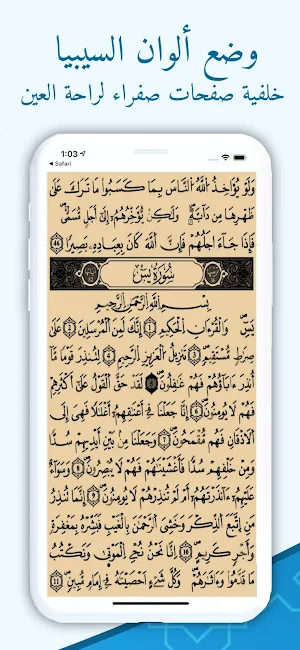 وضع ألوان السيبيا
خلفية صفحات صفراء لراحة العين
1:03
Safari
وَلَوْ يُوَاخِذُ اُ۬للَّهُ اُ۬لنَّاسَ بِمَا كَسَبُواْ مَا تَرَكَ عَلَىٰ
ظَهْرِهَا مِن دَآبَّةٍ وَلَٰكِنْ يُّوَخِّرُهُمُۥٓ إِلَىٰٓ أَجَلٖ مُّسَمّٗى
فَإِذَا جَآءَ اجَلُهُمْ فَإِنَّ اَ۬للَّهَ كَانَ بِعِبَادِهِۦ بَصِيرًا 46
سُورَةُ يٓسٓ
بِسْمِ اِ۬للَّهِ اِ۬لرَّحْمَٰنِ اِ۬لرَّحِيمِ
يٓسٓ وَالْقُرْءَانِ اِ۬لْحَكِيمِ 1 إِنَّكَ لَمِنَ اَ۬لْمُرْسَلِينَ 2 عَلَىٰ
صِرَٰطٖ مُّسْتَقِيمٖ 3 تَنزِيلُ اُ۬لْعَزِيزِ اِ۬لرَّحِيمِ 4 لِتُنذِرَ قَوْمٗا مَّآ
أُنذِرَ ءَابَآؤُهُمْ فَهُمْ غَٰفِلُونَ 5 لَقَدْ حَقَّ اَ۬لْقَوْلُ عَلَىٰٓ أَكْثَرِهِمْ
فَهُمْ لَا يُومِنُونَ 6 إِنَّا جَعَلْنَا فِےٓ أَعْنَٰقِهِمُۥٓ أَغْلَٰلٗا فَهِيَ إِلَى
اَ۬لَاذْقَانِ فَهُم مُّقْمَحُونَ 7 وَجَعَلْنَا مِنۢ بَيْنِ أَيْدِيهِمْ سُدّٗا
وَمِنْ خَلْفِهِمْ سُدّٗا فَأَغْشَيْنَٰهُمْ فَهُمْ لَا يُبْصِرُونَ 8 وَسَوَآءٌ
عَلَيْهِمُۥٓ ءَآنذَرْتَهُمُۥٓ أَمْ لَمْ تُنذِرْهُمْ لَا يُومِنُونَ 9 إِنَّمَا تُنذِرُ
مَنِ اِ۪تَّبَعَ اَ۬لذِّكْرَ وَخَشِيَ اَ۬لرَّحْمَٰنَ بِالْغَيْبِ فَبَشِّرْهُ بِمَغْفِرَةٖ
وَأَجْرٖ كَرِيمٍ 10 اِنَّا نَحْنُ نُحْيِ اِ۬لْمَوْتَىٰ وَنَكْتُبُ
مَا قَدَّمُواْ وَءَاثَٰرَهُمْ وَكُلَّ شَےْءٍ اَحْصَيْنَٰهُ فِےٓ إِمَامٖ مُّبِينٖ 11